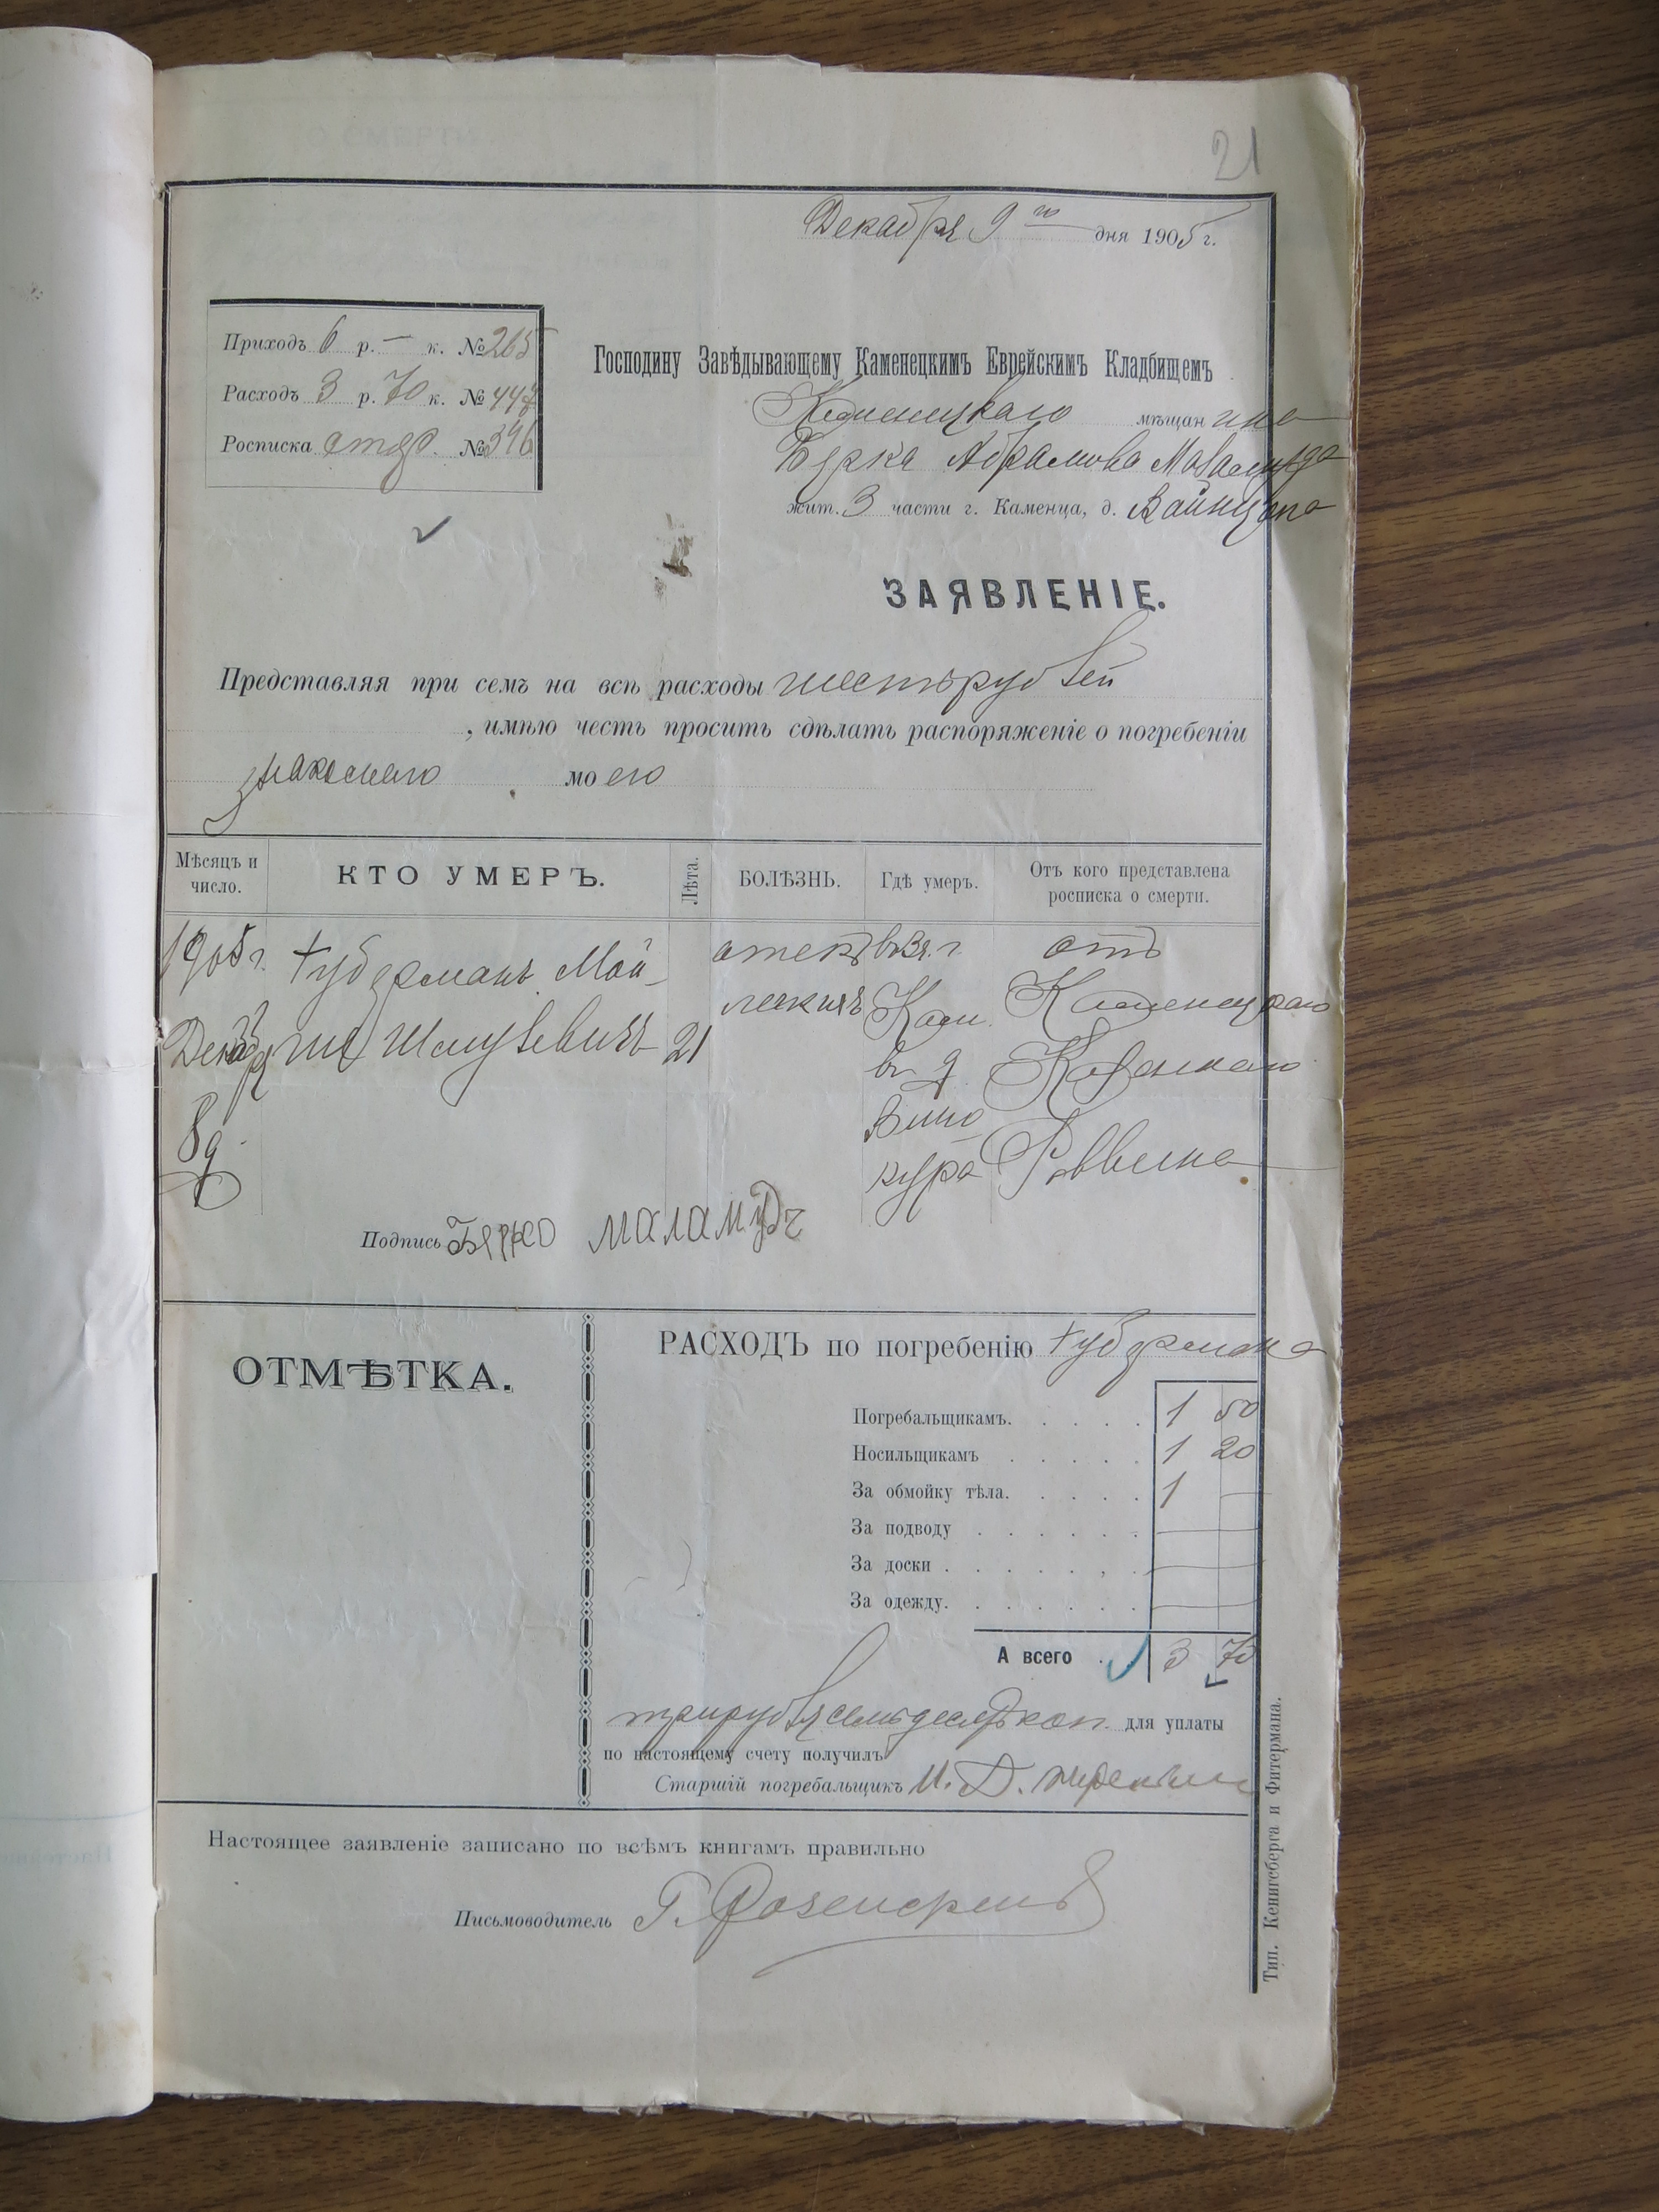 21
Декабря 9го дня 1905 г.
Приходъ 6 р. — к. № 265
Расходъ 3 р. 70 к. № 447
Росписка № 396
Господину Завѣдывающему Каменецкимъ Еврейскимъ Кладбищемъ
Каменецкаго мѣщанина
Берка Абрамова Маламуда
жит. 3 части г. Каменца, д.
ЗАЯВЛЕНІЕ.
Представляя при семъ на всѣ расходы шесть рублей
, имѣю честь просить сдѣлать распоряженіе о погребеніи
знакомаго моего
Мѣсяцъ и число.
КТО УМЕРЪ.
Лѣта.
БОЛѢЗНЬ.
Гдѣ умеръ.
Отъ кого представлена росписка о смерти.
1905 г. Губерманъ Мой- отекъ въ 3 ч. г. отъ
легкихъ Кам. Каменецкаго
Декабря ше Шмулевичъ 21 въ д.
8 д. Вино
кура Раввина
Подпись Берко Маламудъ
ОТМѢТКА.
РАСХОДЪ по погребенію Губермана
Погребальщикамъ. . . . . 1 50
Носильщикамъ . . . . . 1 20
За обмойку тѣла. . . . . 1 —
За подводу . . . . . .
За доски . . . . . .
За одежду. . . . . . .
А всего . 3 70
три рубля семьдесятъ коп. для уплаты
по настоящему счету получилъ
Старшій погребальщикъ И. Д.
Настоящее заявленіе записано по всѣмъ книгамъ правильно
Письмоводитель Г.
Тип. Кенигсберга и Фитермана.